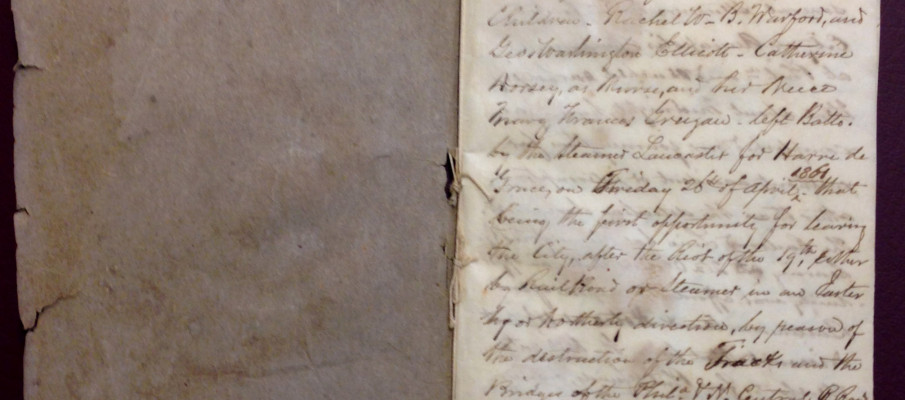 Children - Rachel W. B. Warford, and
Geo Washington Ellicott - Catherine
Dorsey, as Nurse, and her Niece
Mary Frances - left Balto.
by the Steamer Lancaster for Havre de
Grace, on Friday 26th of April, 1861 that
being the first opportunity for leaving
the City, after the Riot of the 19th, either
by Rail Road or Steamer in an Easter
ly or Northerly direction, by reason of
the destruction of the Tracks and the
Bridges of the Phila & N. Central R Road